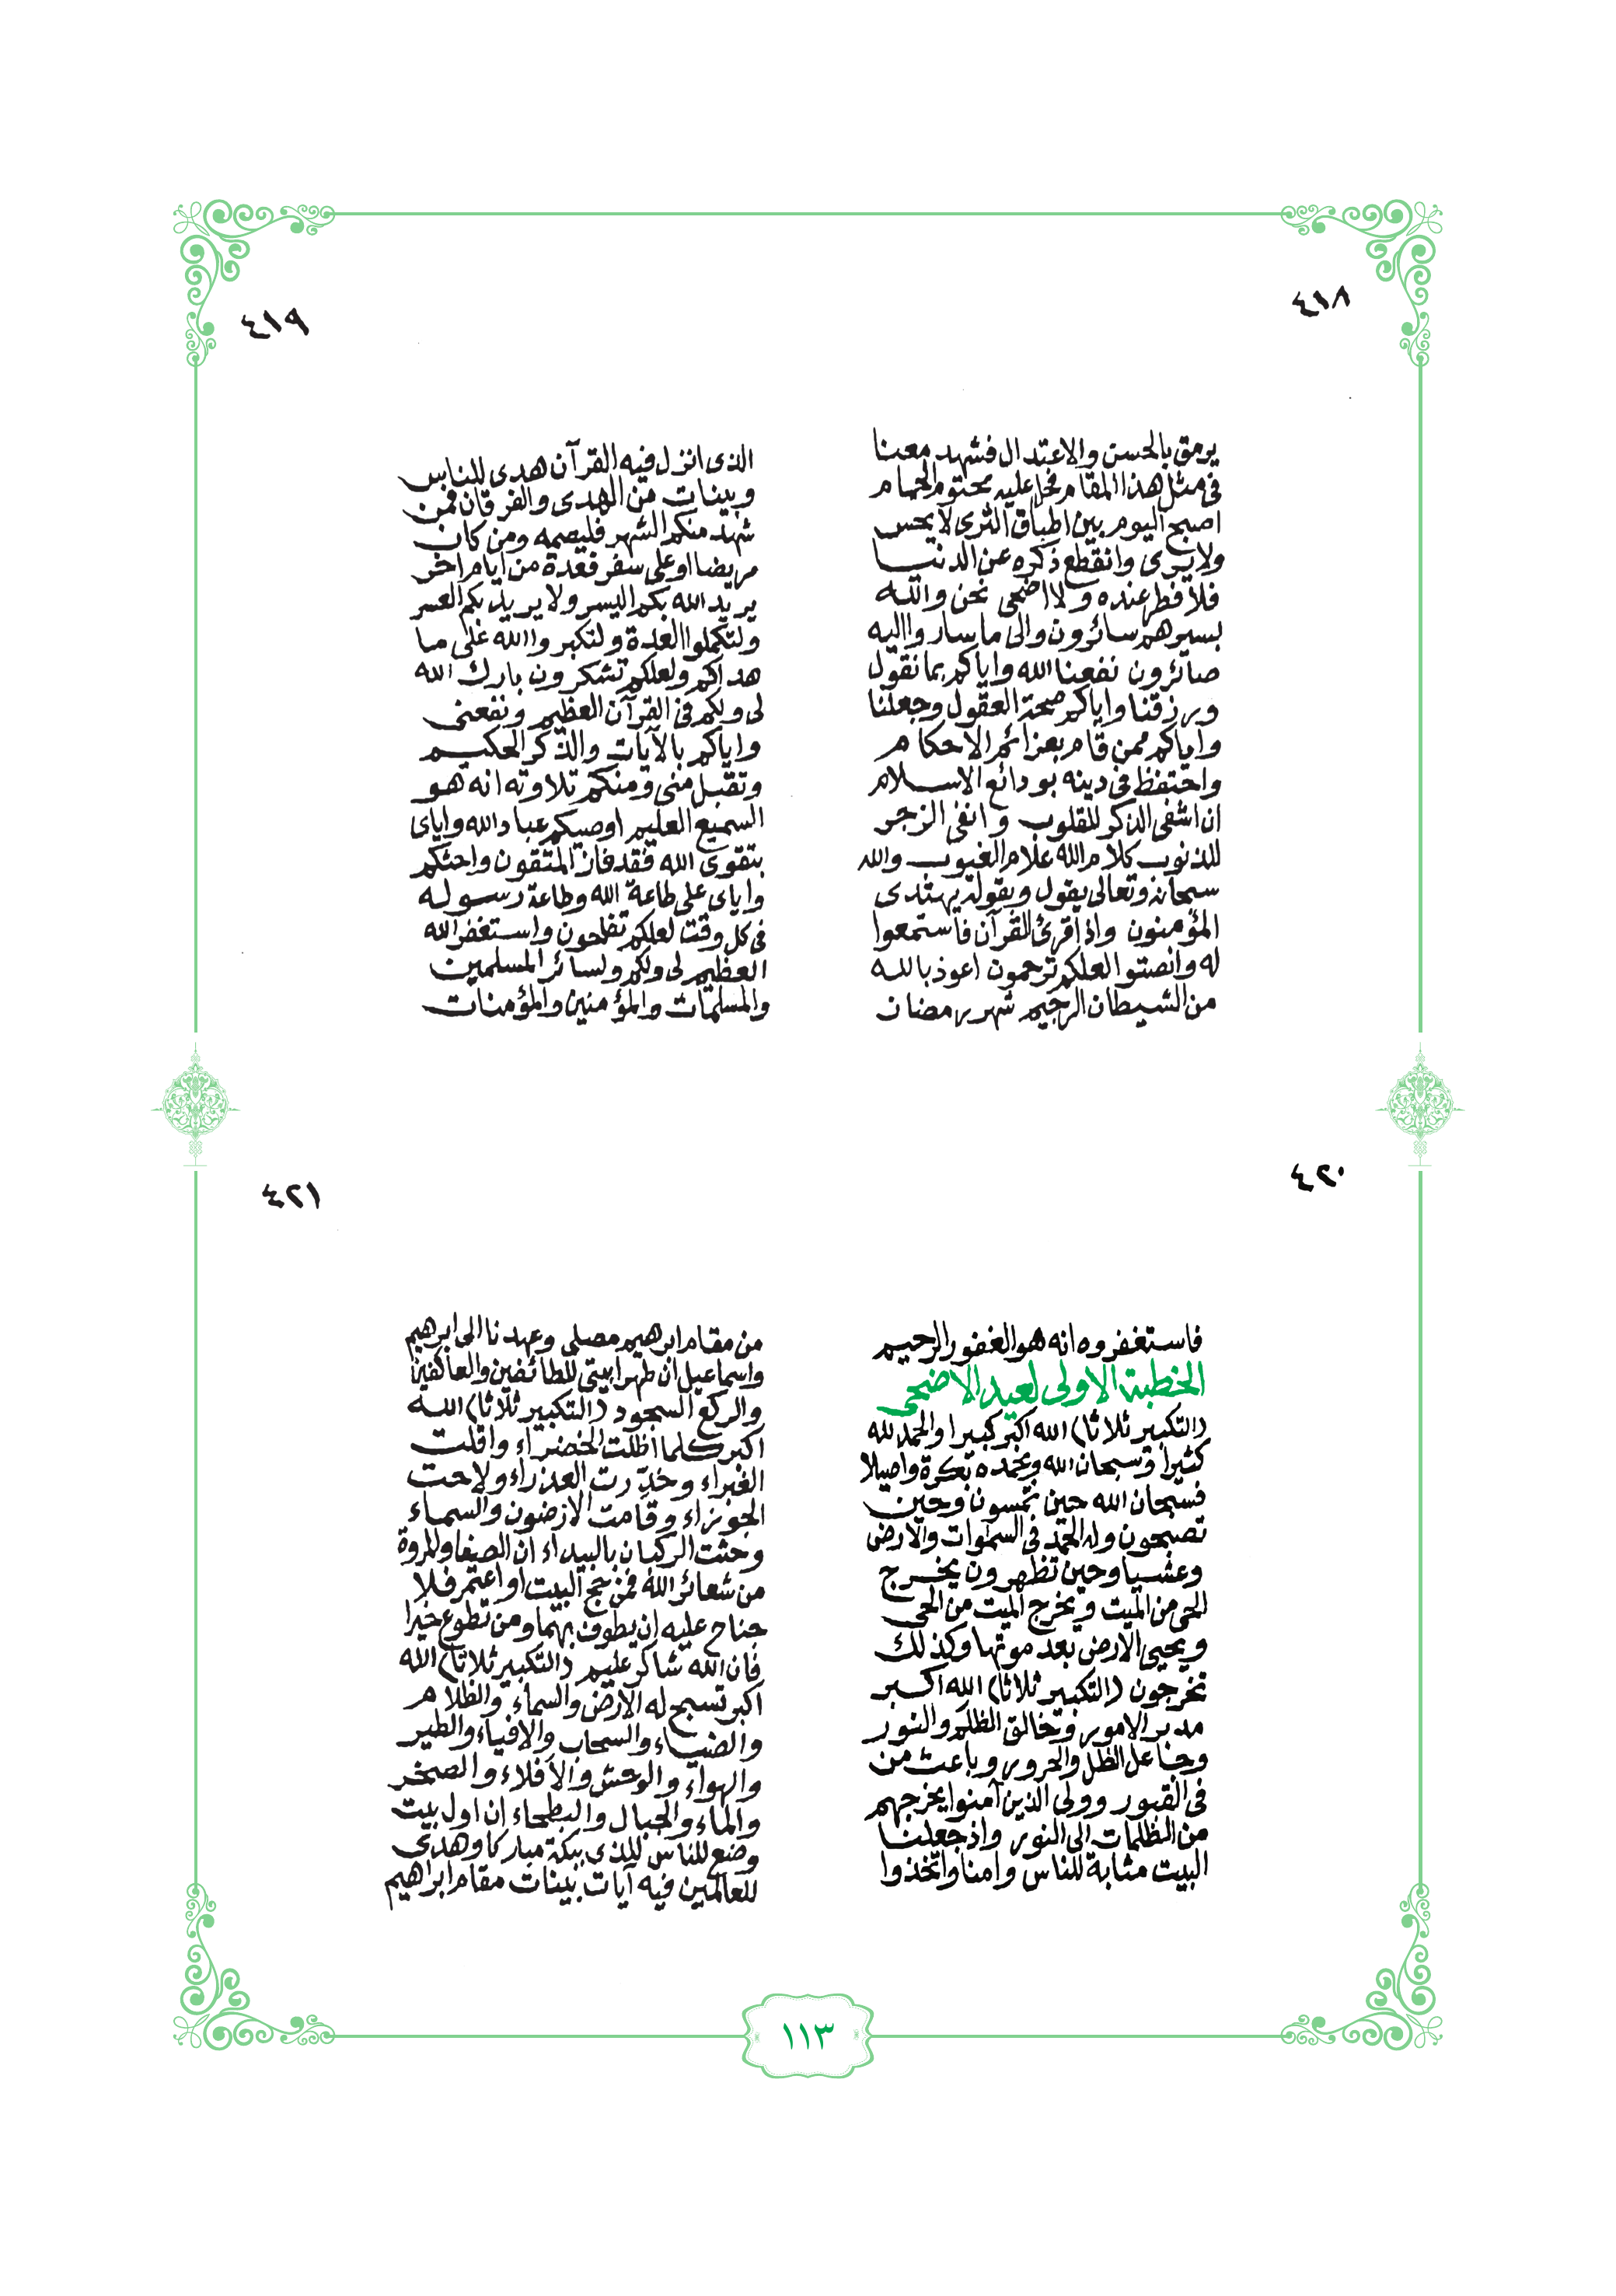 ٤١٨
يرمق بالحسن والاعتدال فشهد معنا
فى مثل هذا المقام فحل عليه محتوم الحمام
اصبح اليوم بين اطباق الثرى لا يحس
ولا يرى وانقطع ذكره عن الدنيا
فلا فطر عنده ولا اضحى نحن والله
بسيرهم سائرون والى ما ساروا اليه
صائرون نفعنا الله واياكم بما نقول
ورزقنا واياكم صحة العقول وجعلنا
واياكم ممن قام بعزائم الاحكام
واحتفظ فى دينه بودائع الاسلام
ان اشفى الذكر للقلوب وانفى الزجر
للذنوب كلام الله علام الغيوب والله
سبحانه وتعالى يقول وبقوله يهتدى
المؤمنون واذا قرئ القرآن فاستمعوا
له وانصتوا لعلكم ترحمون اعوذ بالله
من الشيطان الرجيم شهر رمضان
٤١٩
الذى انزل فيه القرآن هدى للناس
وبينات من الهدى والفرقان فمن
شهد منكم الشهر فليصمه ومن كان
مريضا او على سفر فعدة من ايام اخر
يريد الله بكم اليسر ولا يريد بكم العسر
ولتكملوا العدة ولتكبروا الله على ما
هداكم ولعلكم تشكرون بارك الله
لى ولكم فى القرآن العظيم ونفعنى
واياكم بالآيات والذكر الحكيم
وتقبل منى ومنكم تلاوته انه هو
السميع العليم اوصيكم عباد الله واياى
بتقوى الله فقد فاز المتقون واحثكم
واياى على طاعة الله وطاعة رسوله
فى كل وقت لعلكم تفلحون واستغفر الله
العظيم لى ولكم ولسائر المسلمين
والمسلمات والمؤمنين والمؤمنات
٤٢٠
فاستغفروه انه هو الغفور الرحيم
الخطبة الاولى لعيد الاضحى
(التكبير ثلاثا) الله اكبر كبيرا والحمد لله
كثيرا وسبحان الله وبحمده بكرة واصيلا
فسبحان الله حين تمسون وحين
تصبحون وله الحمد فى السموات والارض
وعشيا وحين تظهرون يخرج
الحى من الميت ويخرج الميت من الحى
ويحيى الارض بعد موتها وكذلك
تخرجون (التكبير ثلاثا) الله اكبر
مدبر الامور وخالق الظلم والنور
وجاعل الظل والحرور وباعث من
فى القبور وولى الذين آمنوا يخرجهم
من الظلمات الى النور واذ جعلنا
البيت مثابة للناس وامنا واتخذوا
٤٢١
من مقام ابرهيم مصلى وعهدنا الى ابرهيم
واسماعيل ان طهرا بيتى للطائفين والعاكفين
والركع السجود (التكبير ثلاثا) الله
اكبر كلما اظلت الخضراء واقلت
الغبراء وخدِّرت العذراء ولاحت
الجوزاء وقامت الارضون والسماء
وحثت الركبان بالبيداء ان الصفا والمروة
من شعائر الله فمن حج البيت او اعتمر فلا
جناح عليه ان يطوف بهما ومن تطوع خيرا
فان الله شاكر عليم (التكبير ثلاثا) الله
اكبر تسبح له الارض والسماء والظلام
والضياء والسحاب والافياء والطير
والهواء والوحش والافلاء والصخر
والماء والجبال والبطحاء ان اول بيت
وضع للناس للذى ببكة مباركا وهدى
للعالمين فيه آيات بينات مقام ابراهيم
١١٣